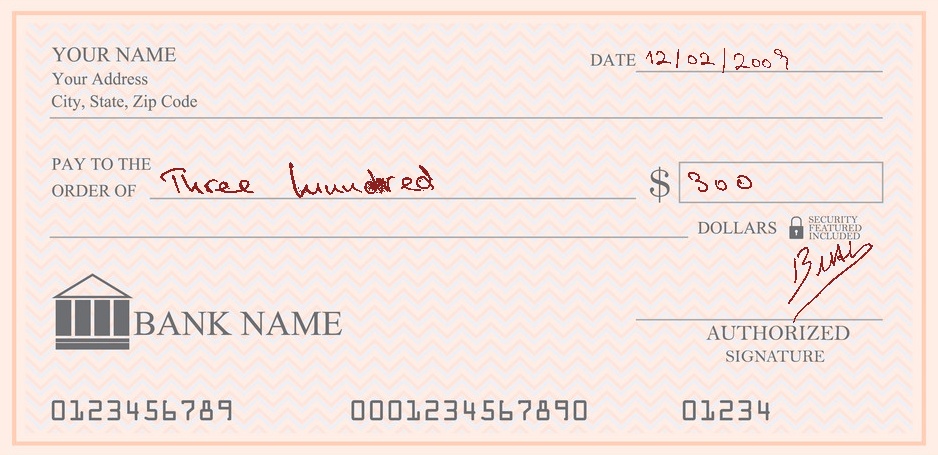 YOUR NAME
Your Address
City, State, Zip Code
DATE 12/02/2009
PAY TO THE
ORDER OF Three hundred $ 300
DOLLARS SECURITY FEATURED INCLUDED
BANK NAME
AUTHORIZED
SIGNATURE
0123456789 0001234567890 01234